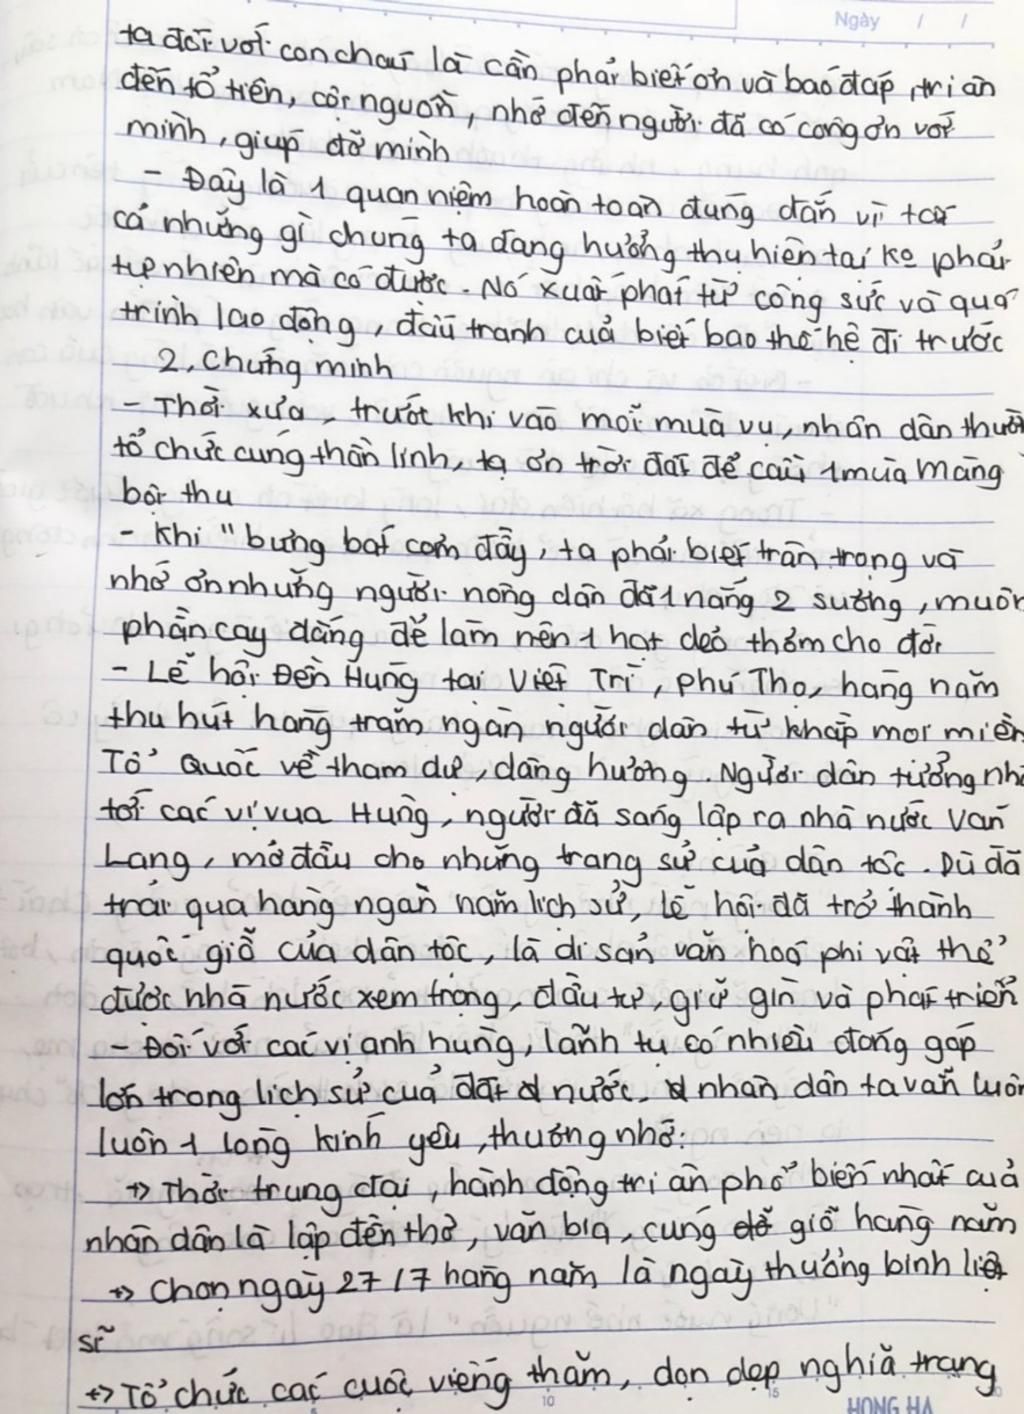 Ngày / /
ta đối với con cháu là cần phải biết ơn và báo đáp, tri ân
đến tổ tiên, cội nguồn, nhớ đến người đã có công ơn với
mình, giúp đỡ mình
- Đây là 1 quan niệm hoàn toàn đúng đắn vì tất
cả những gì chúng ta đang hưởng thụ hiện tại ko phải
tự nhiên mà có được. Nó xuất phát từ công sức và quá
trình lao động, đấu tranh của biết bao thế hệ đi trước
2, Chứng minh
- Thời xưa, trước khi vào mỗi mùa vụ, nhân dân thườ
tổ chức cúng thần linh, tạ ơn trời đất để cầu 1 mùa màng
bội thu
- Khi "bưng bát cơm đầy, ta phải biết trân trọng và
nhớ ơn những người nông dân đã 1 nắng 2 sương, muôn
phần cay đắng để làm nên 1 hạt dẻo thơm cho đời
- Lễ hội Đền Hùng tại Việt Trì, Phú Thọ, hàng năm
thu hút hàng trăm ngàn người dân từ khắp mọi miền
Tổ Quốc về tham dự, dâng hương. Người dân tưởng nhớ
tới các vị vua Hùng, người đã sáng lập ra nhà nước Văn
Lang, mở đầu cho những trang sử của dân tộc. Dù đã
trải qua hàng ngàn năm lịch sử, lễ hội đã trở thành
quốc giỗ của dân tộc, là di sản văn hoá phi vật thể
được nhà nước xem trọng, đầu tư, giữ gìn và phát triển
- Đối với các vị anh hùng, lãnh tụ có nhiều đóng góp
lớn trong lịch sử của đất nước, nhân dân ta vẫn luôn
luôn 1 lòng kính yêu, thương nhớ:
↔ Thời trung đại, hành động tri ân phổ biến nhất của
nhân dân là lập đền thờ, văn bia, cúng giỗ hàng năm
↔ Chọn ngày 27/7 hàng năm là ngày thương binh liệt
sĩ
↔ Tổ chức các cuộc viếng thăm, dọn dẹp nghĩa trang
10 15 HONG HA